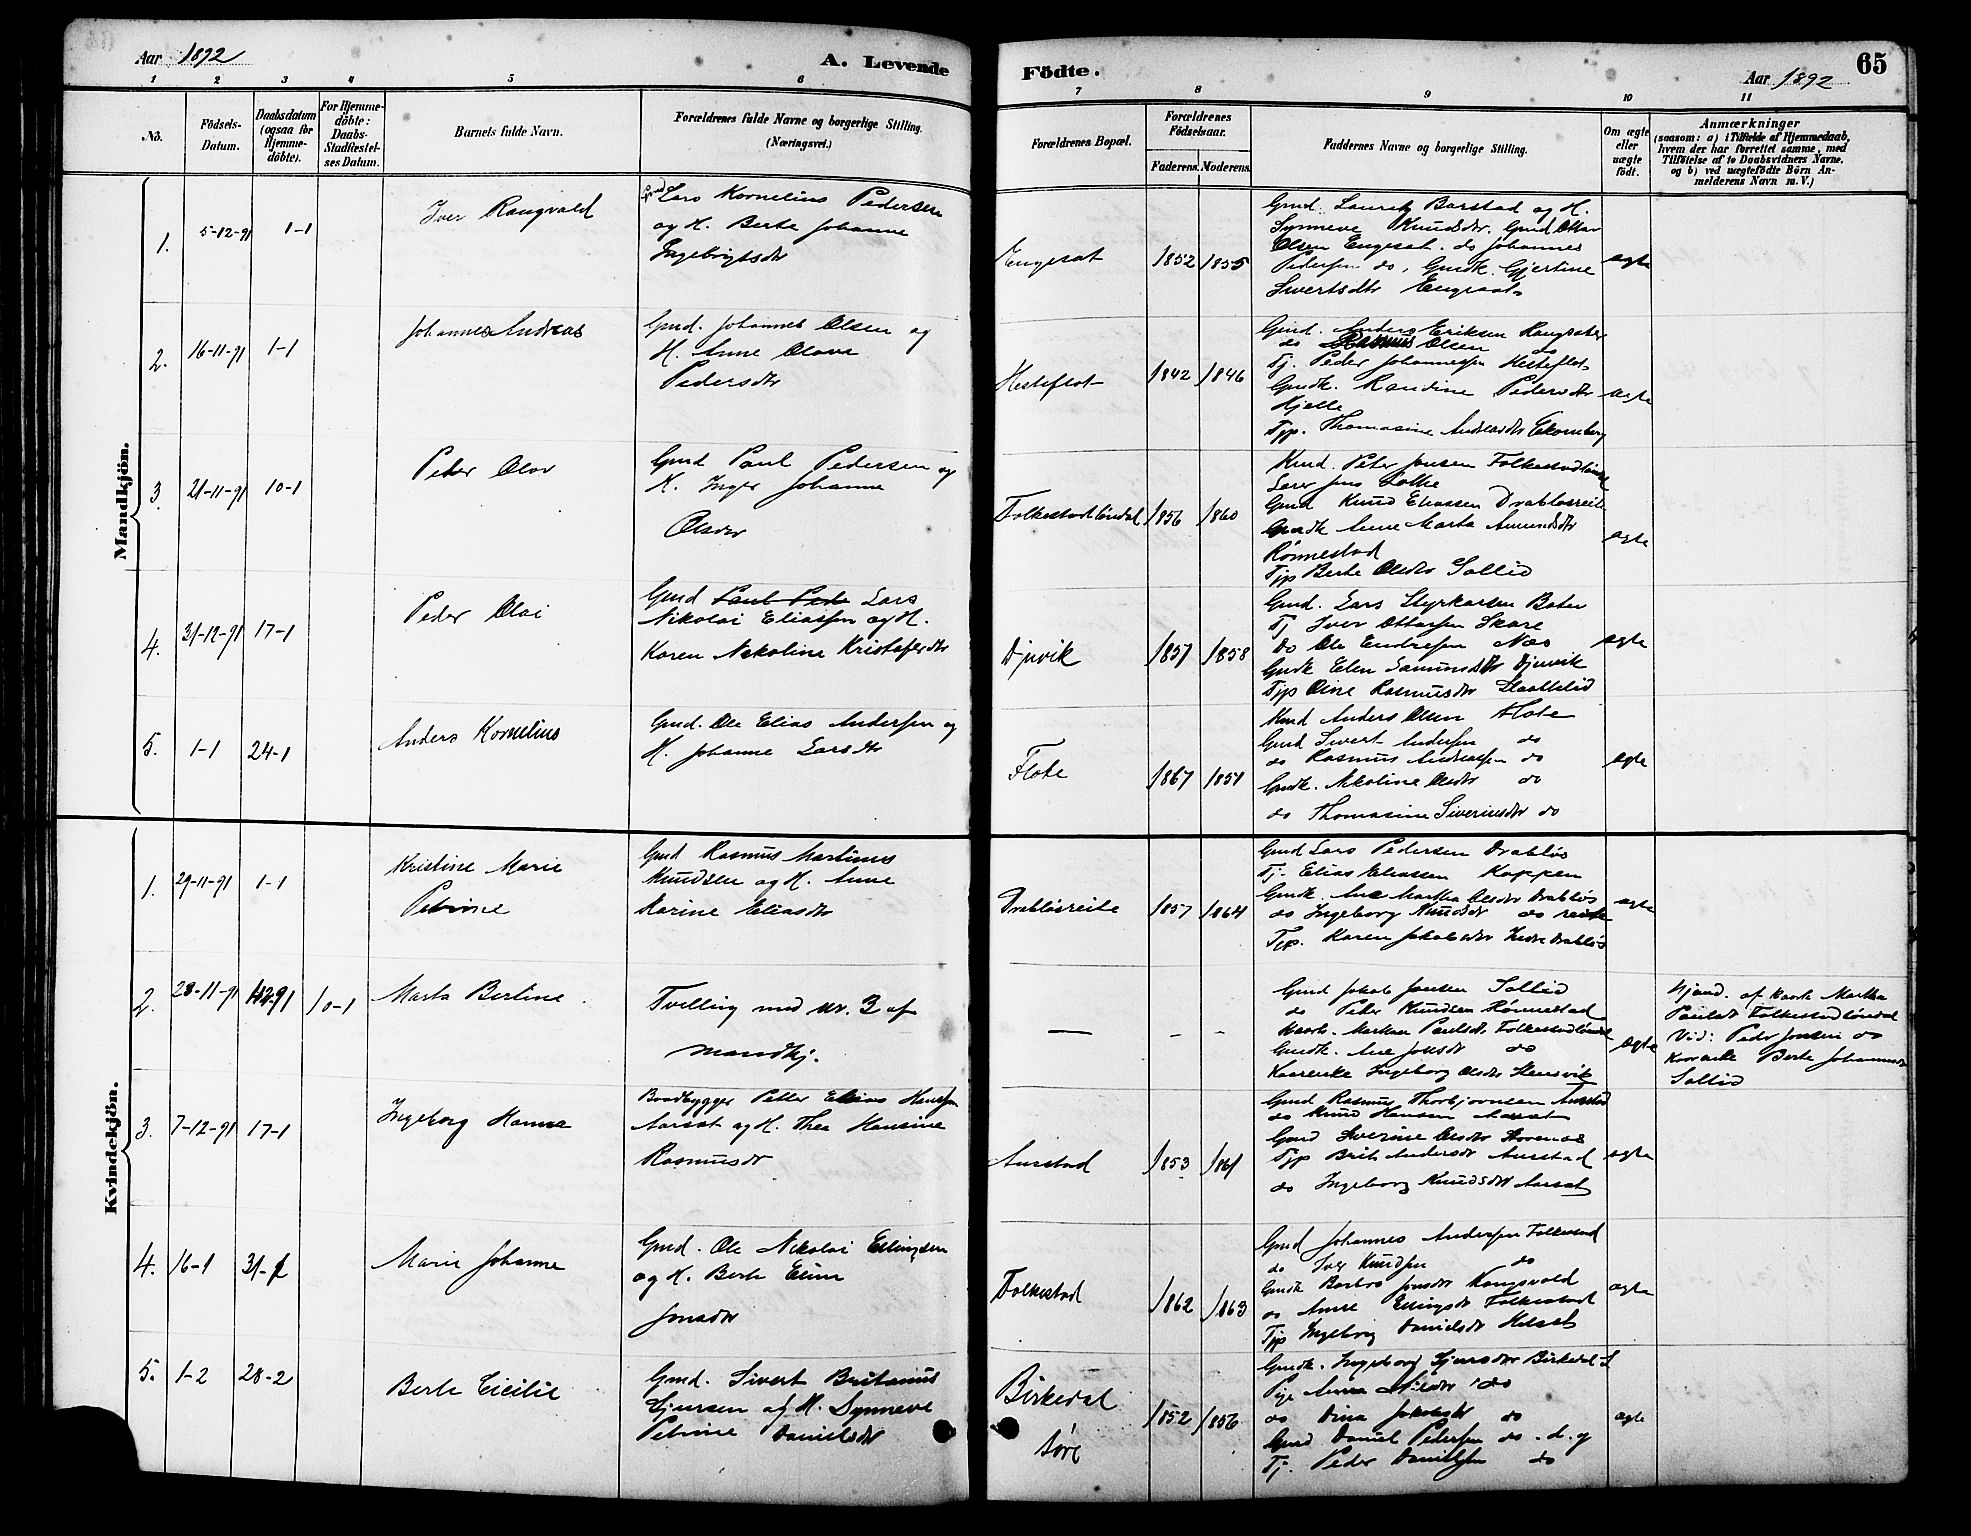 Aar 1892
A. Levende
Födte.
Aar 1892
65
1 2 3 4 5 6 7 8 9 10 11
No.
Födsels-
Datum.
Daabsdatum
(ogsaa for
Hjemme-
döbte).
For Hjemme-
döbte:
Daabs-
Stadfæstel-
ses Datum.
Barnets fulde Navn.
Forældrenes fulde Navne og borgerlige Stilling.
(Næringsvei.)
Forældrenes Bopæl.
Forældrenes
Födselsaar.
Faderens. Moderens.
Faddernes Navne og borgerlige Stilling.
Om ægte
eller
uægte
födt.
Anmærkninger
(saasom: a) i Tilfælde af Hjemmedaab,
hvem der har forrettet samme, med
Tilföielse af to Daabsvidners Navne,
og b) ved uægtefödte Börn An-
melderens Navn m. V.)
Mandkjön.
1. 5-12-91 1-1
Iver Rangvald
Gmd Lars Kornelius Pedersen
og H. Berte Johanne
Ingebrigtsdtr
Engesat 1852 1855
Gmd. Lauritz Barstad og H.
Synneve Knudsdtr. Gmd. Ottar
Olsen Engesat. do Johannes
Pedersen do, Gmdk. Gjertine
Sivertsdtr Engesat
ægte
2. 16-11-91 1-1
Johannes Andreas
Gmd. Johannes Olsen og
H. Anne Olave
Pedersdtr
Hesteflot 1842 1846
Gmd. Anders Eriksen
do Rasmus Olsen do
Tj. Peder Johannessen Hesteflot
Gmdk. Randine Pedersdtr
Hjelle
Tjp. Thomasine Andreasdtr Ekornberg
ægte
3. 21-11-91 10-1
Peter Olav
Gmd Paul Pedersen og
H. Inger Johanne
Olsdtr
Folkestadlöndal 1856 1860
Kmd. Peter Jonsen Folkestadlöndal
Gmd Knud Eliassen Drablösreite
Gmdk Anne Marta Amundsdtr
Rönnestad
Tjp Berte Olsdtr Sollid
ægte
4. 31-12-91 17-1
Peder Olai
Gmd Paul Pede Lars
Nikolai Eliassen og H.
Karen Nikoline Kristofersdtr
Djuvik 1857 1858
Gmd. Lars Styrkarsen
Tj Iver Ottarsen Skare
do Ole Endresen Næs
Gmdk Elen Samundsdtr Djuvik
Tjp Oline Rasmusdtr
ægte
5. 1-1 24-1
Anders Kornelius
Gmd. Ole Elias Andersen og
H. Johanne Larsdtr
Flote 1867 1851
Kmd Anders Olsen Flote
Gmd Sivert Andersen do
do Rasmus Andreassen do
Gmdk. Nikoline Olsdtr do
do Thomasine Siverinsdtr do
ægte
Kvindekjön.
1. 29-11-91 1-1
Kristine Marie
Petrine
Gmd Rasmus Martinus
Knudsen og H. Anne
Karine Eliasdtr
Drablösreite 1857 1864
Gmd Lars Pedersen Drablös
Tj. Elias Eliassen Koppen
Gmdk. Ane Martha Olsdtr Drablös
do Ingeborg Knudsdtr do reite
Tjp. Karen Jakobsdtr Indredrablös
ægte
2. 28-11-91 10-1
Marta Bertine
Tvilling med nr. 3 af
mandkj.
— - -
Gmd Jakob Jonsen Sollid
do Peter Knudsen Rönnestad
Martha Paulsdtr Folkestadlöndal
Gmdk. Ane Jonsdtr do
Kaarenke Ingeborg Olsdtr Stensvik
ægte
Hjemd. af Martha
Paulsdt Folkestadlöndal
Vid: Peder Jonsen do
Berte Johannesdtr
Sollid
3. 7-12-91 17-1
Ingeborg Hanne
Baadbygger Petter Elias Hansen
Aarsat og H. Thea Hansine
Rasmusdt
Aurstad 1853 1861
Gmd Rasmus Thorbjornsen Aurstad
do Knud Hansen Aarsat
Gmd Siverine Olsdtr
Tjp Brit Andersdt Aurstad
do Ingeborg Knudsdtr Aarsat
ægte
4. 16-1 31-1
Marie Johanne
Gmd. Ole Nikolai Ellingsen
og H. Berte Eline
Jonsdtr
Folkestad 1862 1863
Gmd Johannes Andersen Folkestad
do Iver Knudsen do
Gmdk Barbro Jonsdtr Kongsvold
do Anne Ellingsdt Folkestad
Tjp Ingeborg Danielsdt Helset
ægte
5. 1-2 28-2
Berte Cicilie
Gmd. Sivert Britanus
Sjursen og H. Synneve
Petrine Danielsdtr
Birkedal
söre
1852 1856
Gmdk. Ingeborg Sjursdtr Birkedal S
Pige Anna Nilsdtr do
do Dina Jakobsdt do
Gmd Daniel Pedersen do. d. y
Tj. Peder Danielsen do
ægte